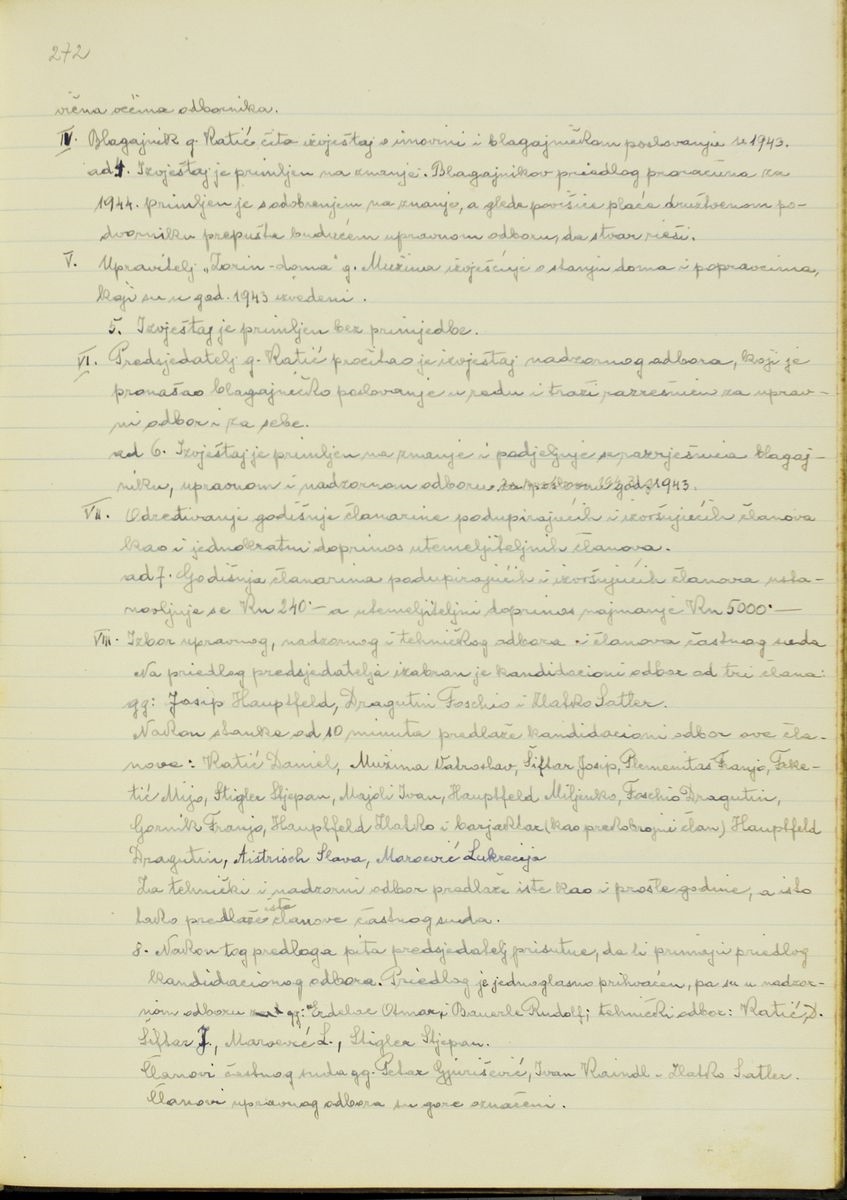 272
vična većina odbornika.
IV. Blagajnik g. Katić čita izvještaj o imovini i blagajničkom poslovanju u 1943.
ad 4. Izvještaj je primljen na znanje. Blagajnikov priedlog proračuna za
1944. primljen je s odobrenjem na znanje, a glede povišice plaće družtvenom po-
dvorniku prepušta budućem upravnom odboru, da stvar rieši.
V. Upravitelj „Zorin-doma" g. Mužina izvješćuje o stanju doma i popravcima,
koji su u god. 1943 izvedeni.
5. Izvještaj je primljen bez primjedbe.
VI. Predsjedatelj g. Katić pročitao je izvještaj nadzornog odbora, koji je
pronašao blagajničko poslovanje u redu i traži razrešnicu za uprav-
ni odbor i za sebe.
ad 6. Izvještaj je primljen na znanje i podjeljuje se razrješnica blagaj-
niku, upravnom i nadzornom odboru za poslovnu god. 1943.
VII. Određivanje godišnje članarine podupirajućih i izvršujućih članova
kao i jednokratni doprinos utemeljiteljnih članova.
ad 7. Godišnja članarina podupirajućih i izvršujućih članova usta-
novljuje se Kn 240·— a utemeljiteljni doprinos najmanje Kn 5000·—
VIII. Izbor upravnog, nadzornog i tehničkog odbora i članova častnog suda
Na priedlog predsjedatelja izabran je kandidacioni odbor od tri člana:
gg: Josip Hauptfeld, Dragutin Foschio i Zlatko Satler.
Nakon stanke od 10 minuta predlaže kandidacioni odbor ove čla-
nove: Katić Daniel, Mužina Vatroslav, Šiftar Josip, Plemenitaš Franjo, Fake-
tić Mijo, Stigler Stjepan, Majoli Ivan, Hauptfeld Miljenko, Foschio Dragutin,
Gornik Franjo, Hauptfeld Zlatko i barjaktar (kao prekobrojni član) Hauptfeld
Dragutin, Slava, Maroević Lukrecija
Za tehnički i nadzorni odbor predlaže iste kao i prošle godine, a isto
tako predlaže iste članove častnog suda.
8. Nakon tog predloga pita predsjedatelj prisutne, da li primaju priedlog
kandidacionog odbora. Priedlog je jednoglasno prihvaćen, pa su u nadzor-
nom odboru gg: Erdelac Otmar i Bauerle Rudolf; tehnički odbor: Katić D.
Šiftar J., Maroević L., Stigler Stjepan.
Članovi častnog suda gg. Petar Gjurišević, Ivan Kaindl i Zlatko Satler.
Članovi upravnog odbora su gore označeni.